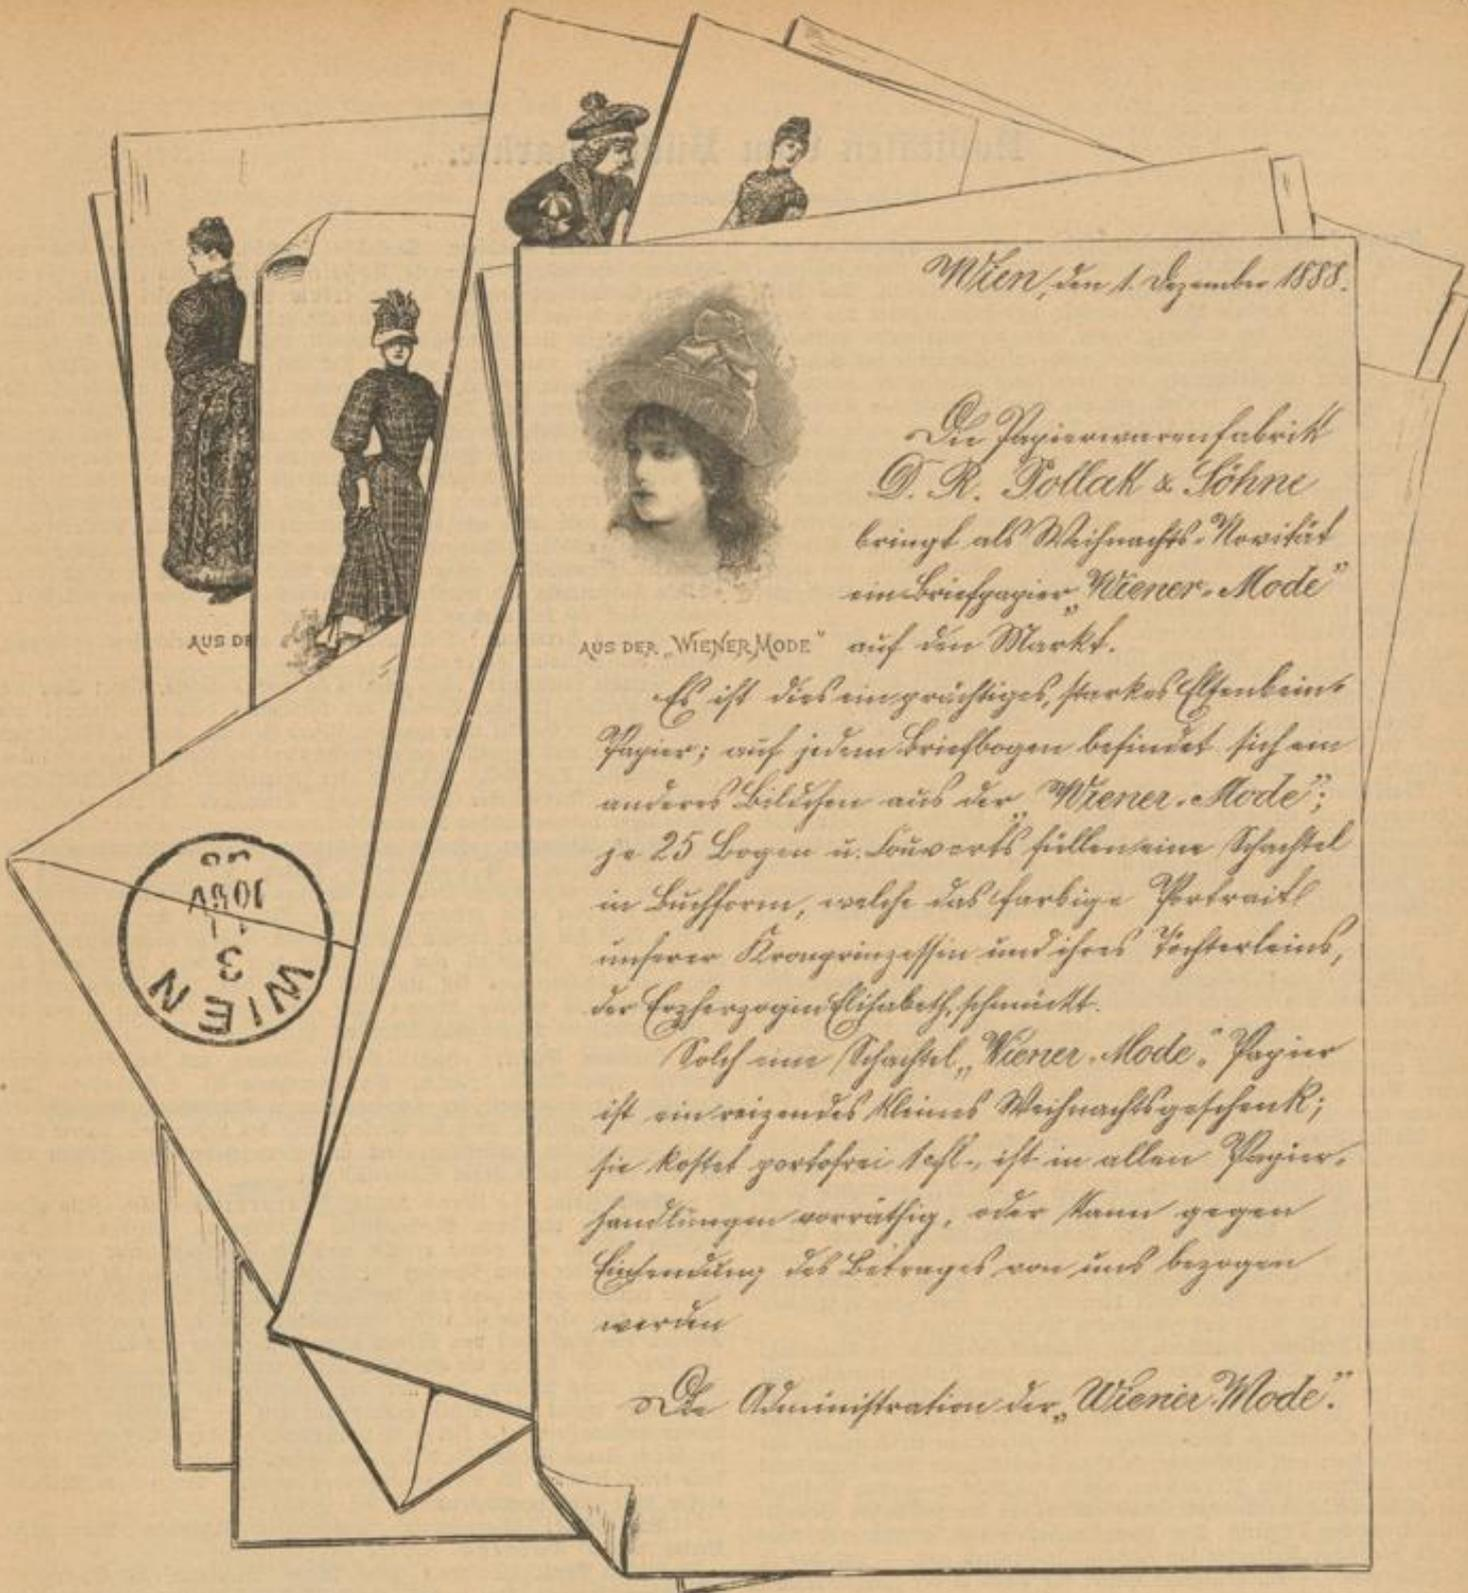 AUS DE
Wien, den 1. Dezember 1888.
Die Papierwarenfabrik
D. R. Pollak & Söhne
bringt als Weihnachts-Novität
ein Briefpapier „Wiener-Mode"
AUS DER „WIENER MODE"
auf den Markt.
Es ist dies ein prächtiges, starkes Elfenbein-
Papier; auf jedem Briefbogen befindet sich ein
anderes Bildchen aus der „Wiener-Mode";
je 25 Bogen u. Couverts füllen eine Schachtel
in Buchform, welche das farbige Portrait
unserer Kronprinzessin und ihres Töchterleins,
der Erzherzogin Elisabeth, schmückt.
Solch eine Schachtel „Wiener-Mode"-Papier
ist ein reizendes kleines Weihnachtsgeschenk;
sie kostet portofrei 1 fl.-, ist in allen Papier-
handlungen vorräthig, oder kann gegen
Einsendung des Betrages von uns bezogen
werden
Die Administration der „Wiener Mode".
WIEN